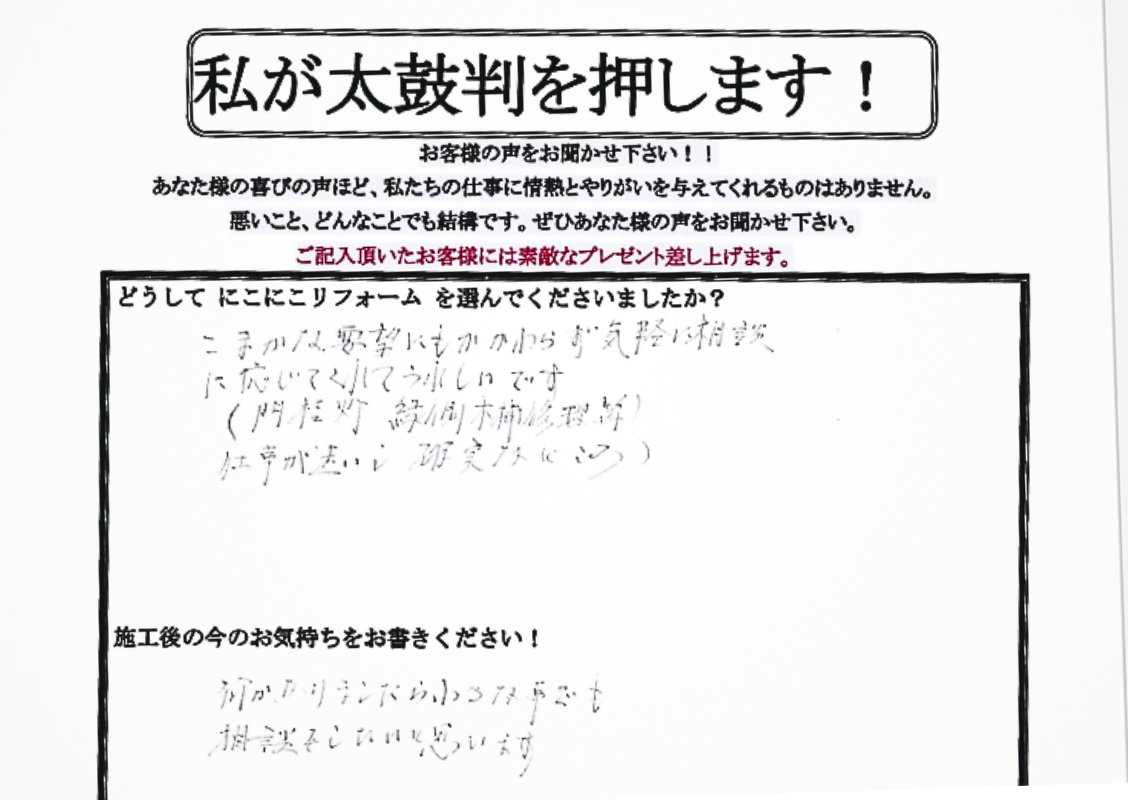 私が太鼓判を押します！
お客様の声をお聞かせ下さい！！
あなた様の喜びの声ほど、私たちの仕事に情熱とやりがいを与えてくれるものはありません。
悪いこと、どんなことでも結構です。ぜひあなた様の声をお聞かせ下さい。
ご記入頂いたお客様には素敵なプレゼント差し上げます。
どうして にこにこリフォーム を選んでくださいましたか？
こまかな要望にもかかわらず気軽に相談
に応じてくれてうれしいです
（門柱灯 縁側 補修理等）
仕事が速いし 確実なところ）
施工後の今のお気持ちをお書きください！
何かありましたら小さな事でも
相談をしたいと思います